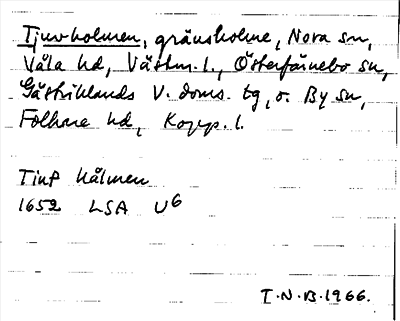 Tjuvholmen, gränsholme, Nora sn,
Våla hd, Västm. l., Österfärnebo sn,
Gästriklands V. doms. tg, o. By sn,
Folkare hd, Kopp. l.
Tiuf hålmen
1652 LSA U6
T.N.B.1966.